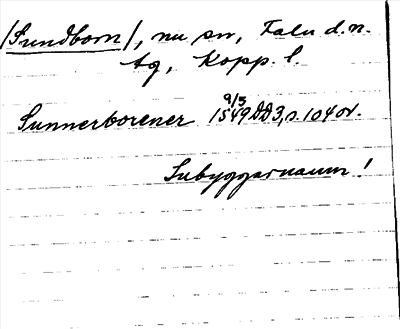 /Sundborn/, nu sn, Falu d.n.
tg, Kopp. l.
9/3
Sunnerborener 1549 DD 3, s. 104 ov.
Inbyggarnamn!